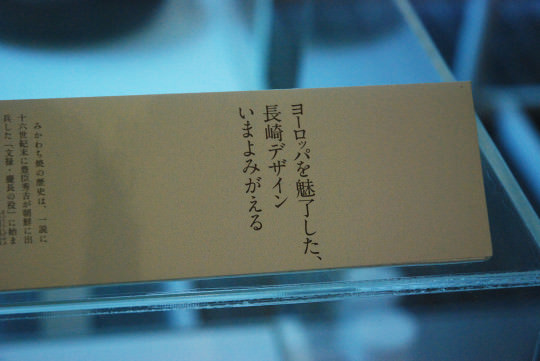 ヨーロッパを魅了した、
長崎デザイン
いまよみがえる
みかわち焼の歴史は、一説に
十六世紀末に豊臣秀吉が朝鮮に出
兵した「文禄・慶長の役」に始ま